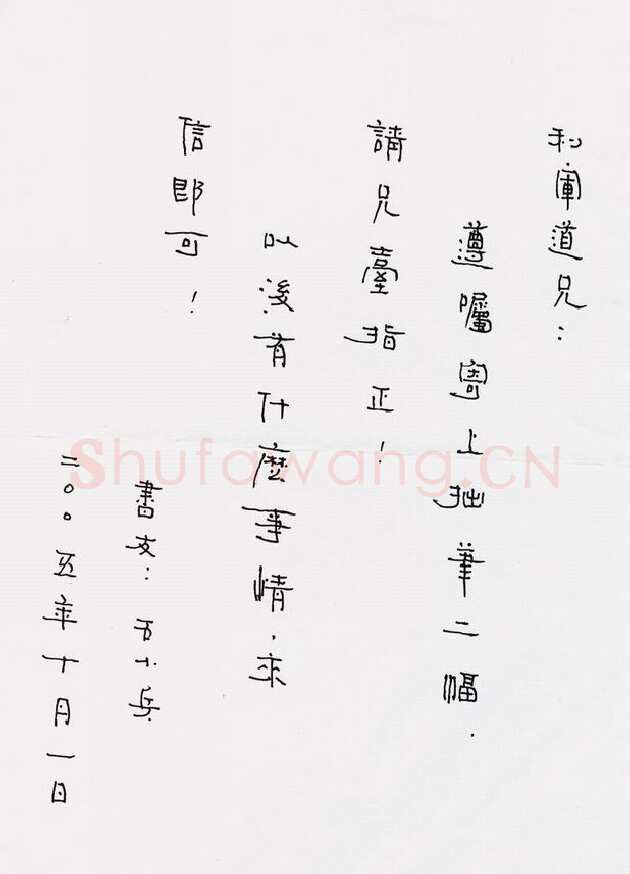 利軍道兄：
遵囑寄上拙筆二幅．
請兄臺指正！
以後有什麼事情．來
信即可！
書友：方小兵
二〇〇五年十月一日
Shufawang.CN